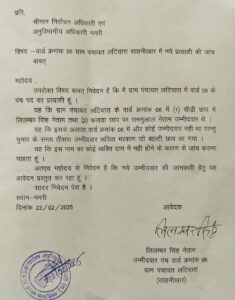 प्रति,
श्रीमान निर्वाचन अधिकारी एवं
अनुविभागीय अधिकारी नगरी
विषय:-वार्ड क्रमांक 06 ग्राम पंचायत लटियारा साहनीखार में नये प्रत्याशी की जांच
बाबत्
महोदय,
उपरोक्त विषय बाबत् निवेदन है कि मैं ग्राम पंचायत लटियारा में वार्ड 06 के
पंच पद का प्रत्याशी हूं ।
यह कि ग्राम पंचायत लटियारा के वार्ड क्रमांक 06 में (1) सीढ़ी छाप में
तिलम्बर सिंह नेताम तथा (2) फावड़ा छाप पर रामगुलाल नेताम उम्मीदवार थे ।
यह कि इसके अलावा वार्ड क्रमांक 06 में और कोई उम्मीदवार नही था परन्तु
चुनाव के समय तीसरा उम्मीदवार सरिता मरकाम जो बाल्टी छाप का आया ।
यह कि इस नाम का कोई व्यक्ति ग्राम में नही होने के कारण से जांच कराना
चाहता हूं ।
अतएव महोदय से निवेदन है कि नये उम्मीदवार की जानकारी हेतु यह
आवेदन प्रस्तुत कर रहा हूं ।
सादर निवेदन पेश है ।
स्थान-नगरी
दिनांक 23/02/2025
आवेदक
तिलम्बर सिंह नेताम
उम्मीदवार पंच वार्ड क्रमांक 06
ग्राम पंचायत लटियारा
(साहनीखार)